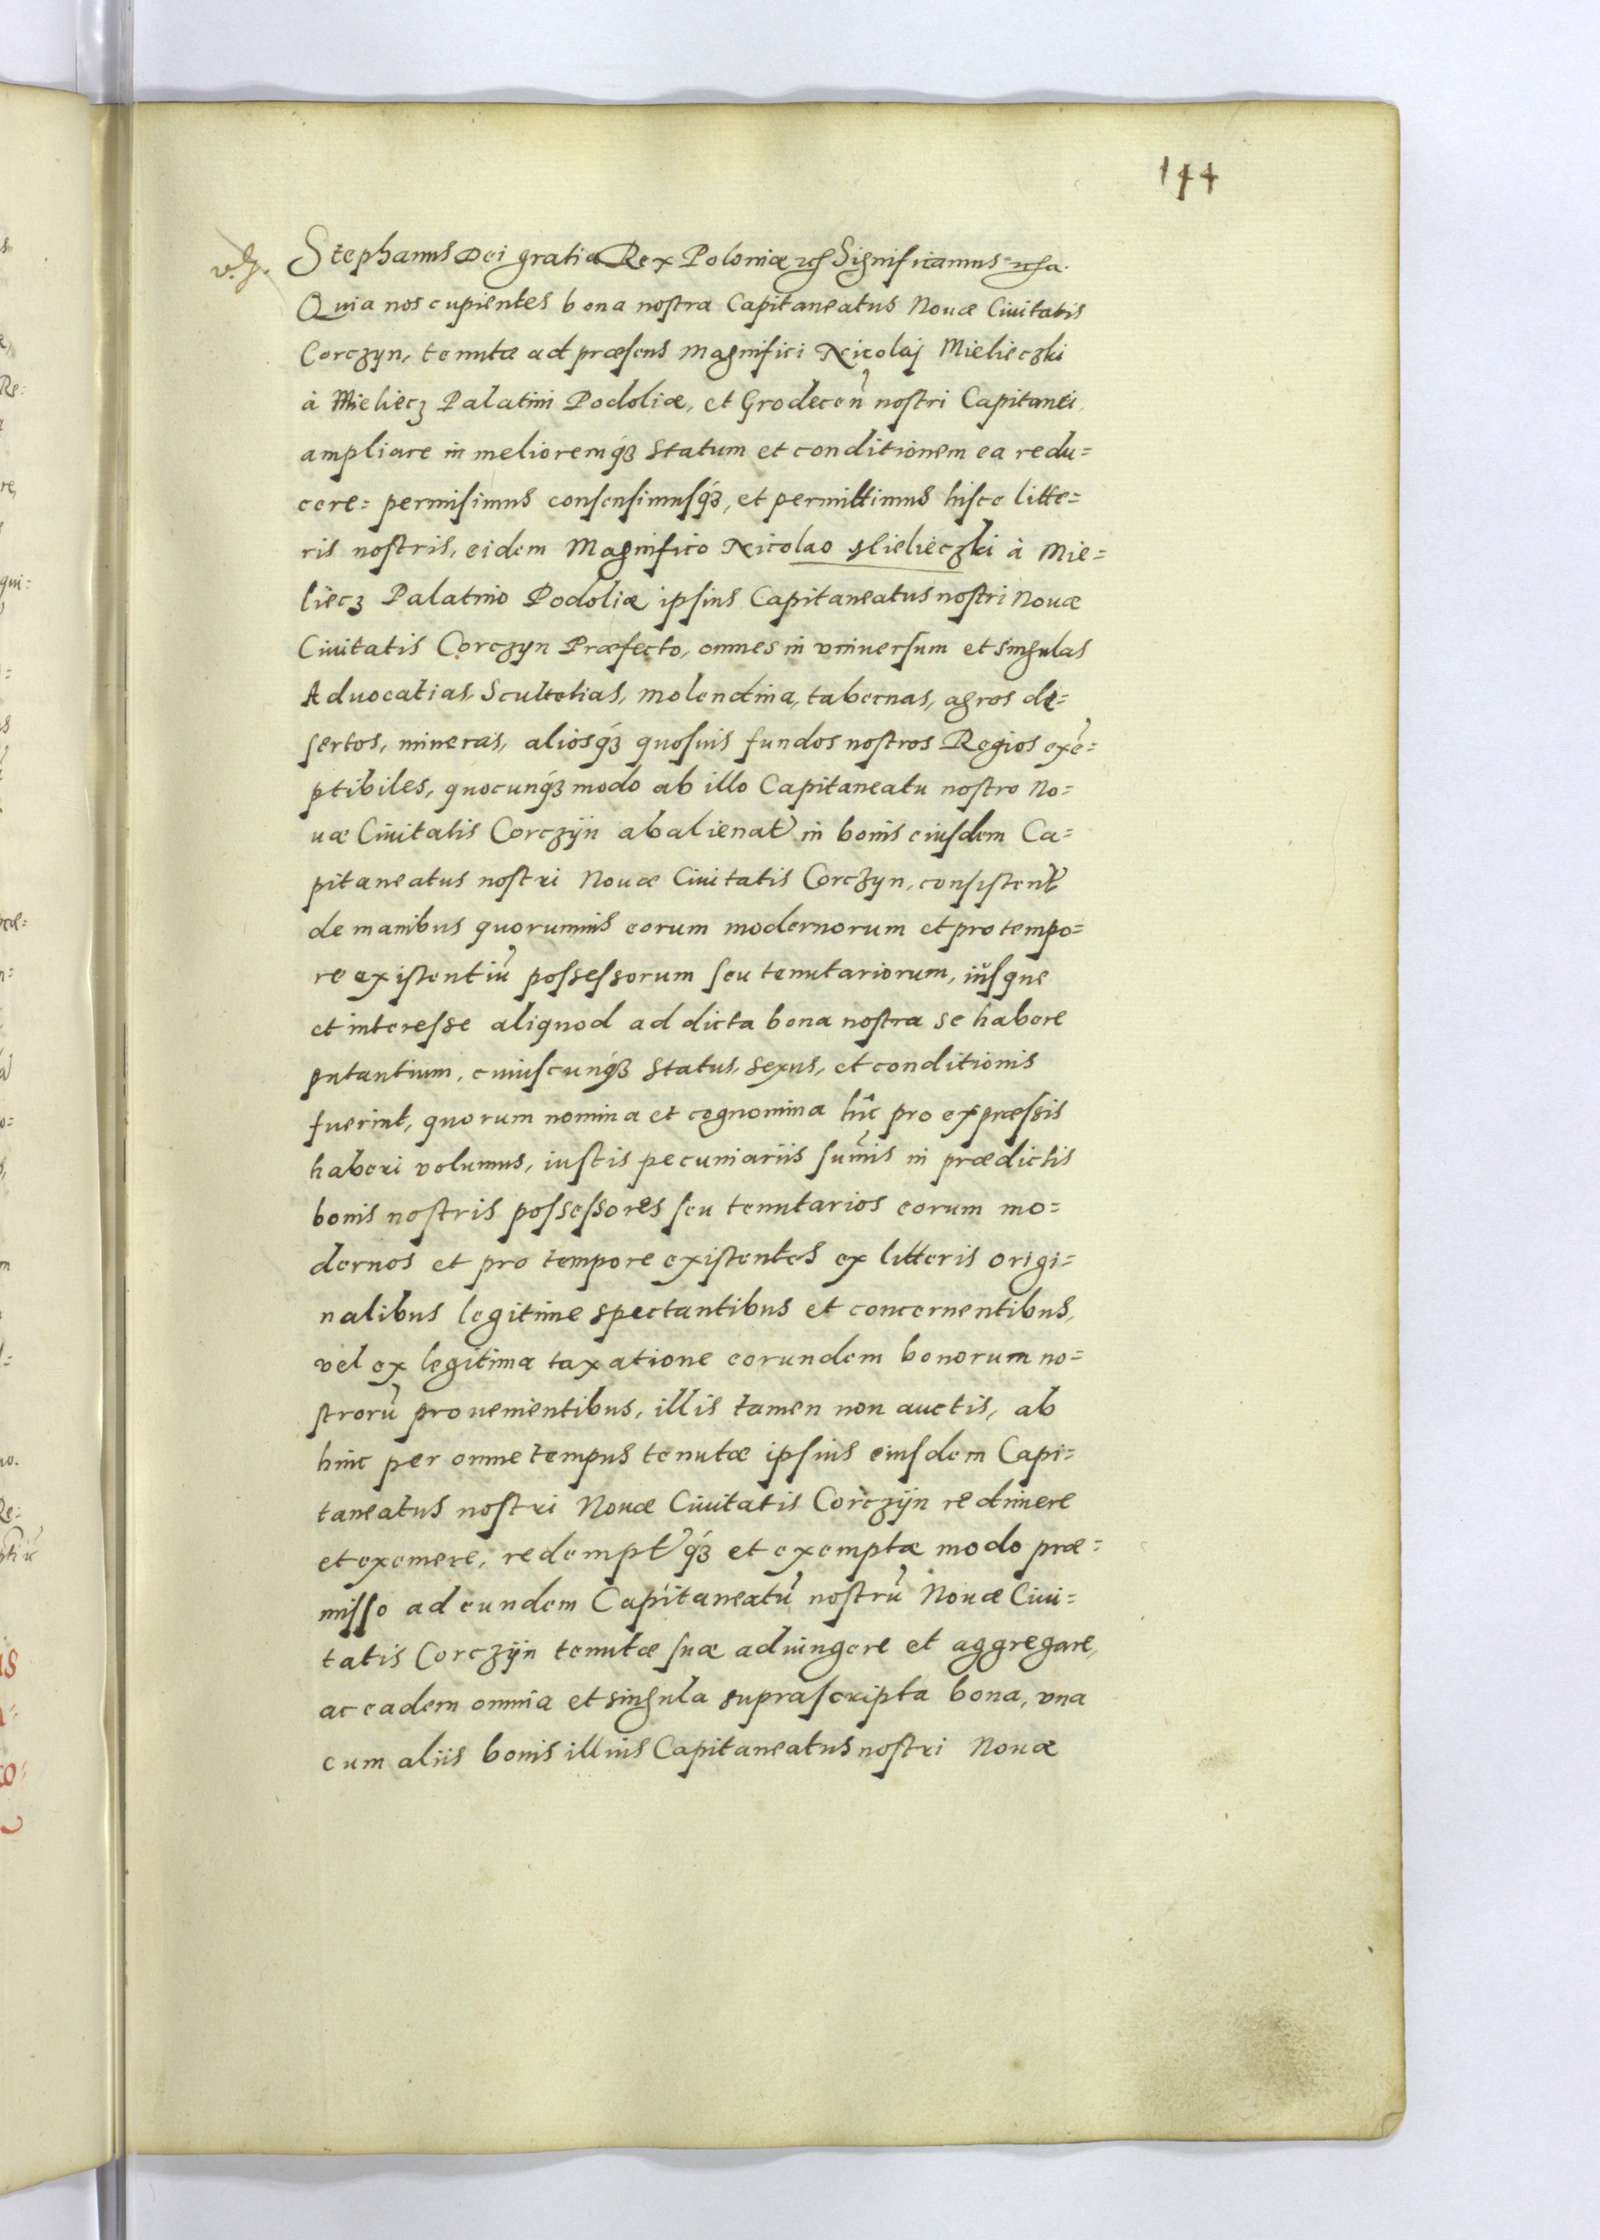 144
Stephanus Dei gratia Rex Poloniæ etc Significamus etca.
Quia nos cupientes bona nostra Capitaneatus Nouæ Ciuitatis
Corczyn, tenutæ ad præsens Magnifici Nicolaj Mielieczki
à Mieliecz Palatini Podoliæ, et Grodecen̄ nostri Capitanei,
ampliare in melioremq́ꝫ statum et conditionem ea redu=
cere= permisimus consensimusq́ꝫ, et permittimus hisce litte=
ris nostris, eidem Magnifico Nicolao Mielieczki à Mie=
liecz Palatino Podoliæ ipsius Capitaneatus nostri Nouæ
Ciuitatis Corczyn Præfecto, omnes in vniuersum et singulas
Aduocatias, Scultetias, molendina, tabernas, agros de=
sertos, mineras, aliosq́ꝫ quosuis fundos nostros Regios exē=
ptibiles, quocunq́ꝫ modo ab illo Capitaneatu nostro No=
uæ Ciuitatis Corczÿn abalienat̃ in bonis eiusdem Ca=
pitaneatus nostri Nouæ Ciuitatis Corczyn, consistent̃
de manibus quorumuis eorum modernorum et pro tempo=
re existentiū possessorum seu tenutariorum, iŭsque
et interesse aliquod ad dicta bona nostra se habere
putantium, cuiuscunq́ꝫ status, sexus, et conditionis
fuerint, quorum nomina et cognomina hîc pro expræssis
haberi volumus, iustis pecuniariis sum̄is in prædictis
bonis nostris possessores seu tenutarios eorum mo=
dernos et pro tempore existentes ex litteris origi=
nalibus legitime spectantibus et concernentibus,
vel ex legitima taxatione eorundem bonorum no=
strorū prouenientibus, illis tamen non auctis, ab
hinc per omne tempus tenutæ ipsius eiusdem Capi=
taneatus nostri Nouæ Ciuitatis Corczÿn redimere
et exemere, redempt̃q́ꝫ et exemptæ modo præ=
misso ad eundem Capitaneatū nostrū Nouæ Ciui=
tatis Corczÿn tenutæ suæ adiungere et aggregare,
ac eadem omnia et singula suprascripta bona, vna
cum aliis bonis illius Capitaneatus nostri Nouæ